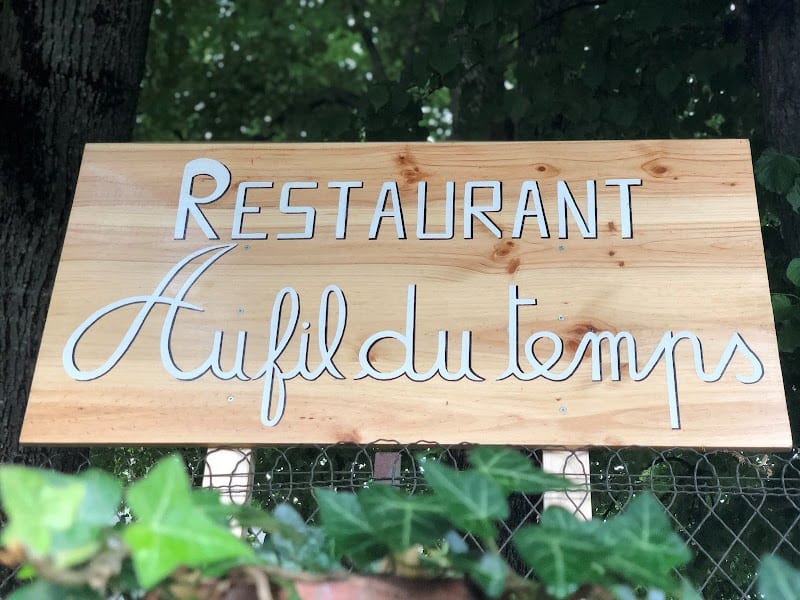 RESTAURANT
Au fil du temps